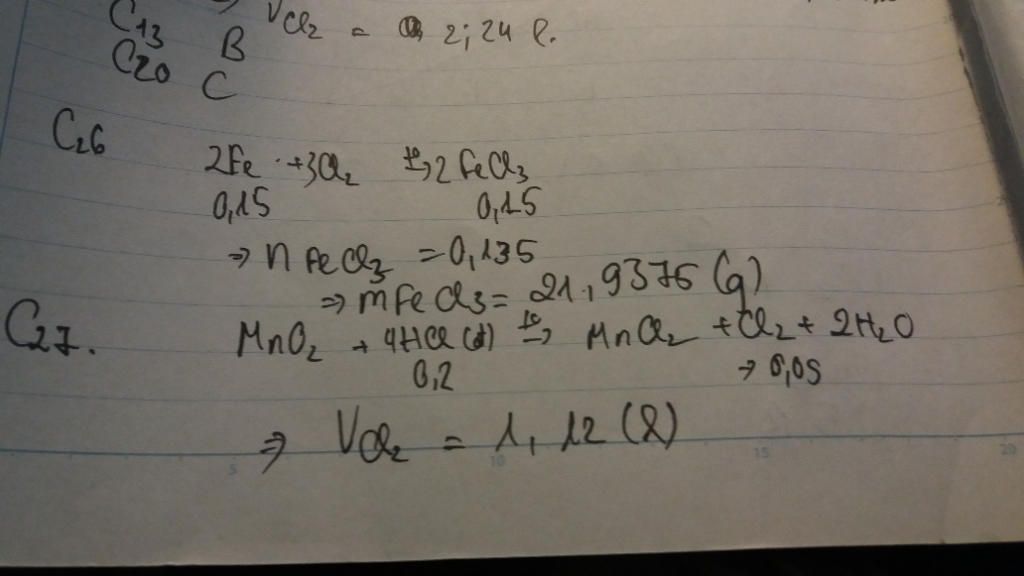 C13 B V Cl2 = 2,24 l.
C20 C
C26
2Fe + 3Cl2 t°→ 2FeCl3
0,15 0,15
⇒ n FeCl3 = 0,135
⇒ mFeCl3 = 21,9375 (g)
C27. MnO2 + 4HCl (đ) t°→ MnCl2 + Cl2 + 2H2O
0,2 → 0,05
⇒ VCl2 = 1,12 (l)
5 10 15 20